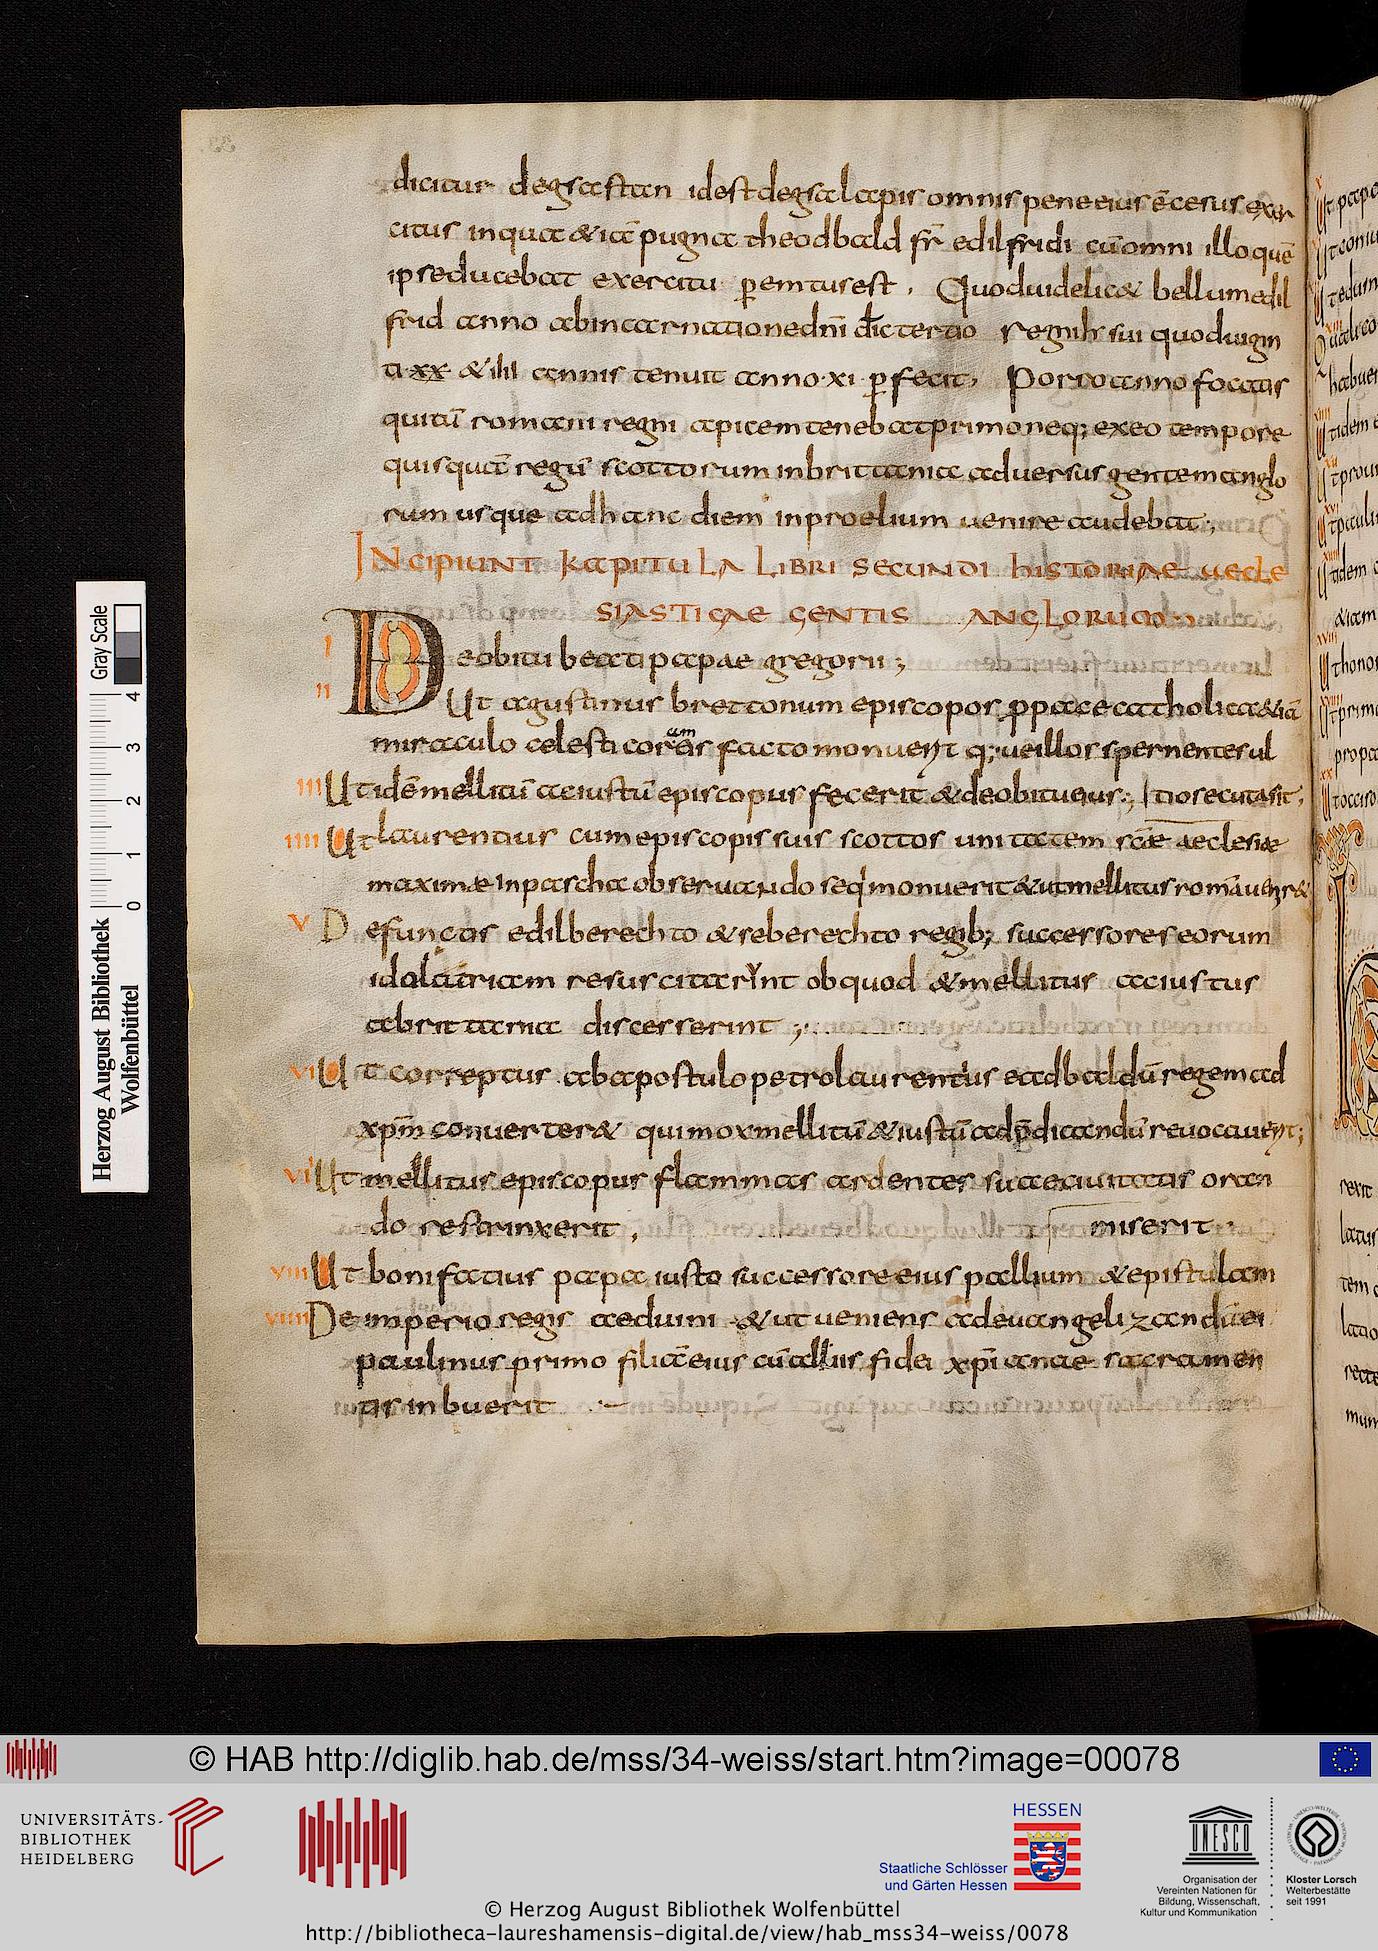 dicitur degsastan idest degsalapis omnis pene eius ēcesus exer
citus inqua & iā pugna theodbald fr̄ edilfridi cū omni illo quē
ipse ducebat exercitu pemtus est . Quod uidelic& bellum edil
frid anno abincarnatione dn̄i dc̄ tertio regni sui quod uigin
ti xx & iiii annis tenuit anno xi pfecit, Porro anno focatis
qui tū romani regni apicem tenebat primo neq; ex eo tempore
quisquā regū scottorum in brittania aduersus gentem anglo
rum usque ad hanc diem in proelium uenire audebat ;
INCIPIUNT KAPITULA LIBRI SECUNDI HISTORIAE AECLE
SIASTICAE GENTIS ANGLORUM
I Deobitu beati papae gregorii ;
II Ut agustinus brettonum episcopos ppace catholica & iā
miraculo celesti coram eis facto monuerit q; ueillos spernentes ul
tio secuta sit .
III Ut idē mellitū ac iustū episcopus fecerit & deobitu eius ;
IIII Ut laurentius cum episcopis suis scottos unitatem scāe aeclesiae
maximae In pascha obseruando seq monuerit & ut mellitus romā uener&
V Defunctis edilberechto & seberechto regib; successores eorum
idolatriam resuscitarint ob quod & mellitus ac iustus
abrittania discesserint ;
VI Ut correptus ab apostulo petro laurentius eadbaldū regem ad
xpm̄ conuerter& qui mox mellitū & iustū ad p̄dicandū reuocauerit ;
VII Ut mellitus episcopus flammas ardentes suae ciuitatis oran
do restrinxerit ,
VIII Ut bonifatius papa iusto successore eius pallium & epistulam
miserit
VIIII De imperio regis aeduini & ut ueniens ad euangelizandū ei
paulinus primo filiā eius cū alliis fidei xpi̅anae sacramen
tis inbuerit
Gray Scale
Herzog August Bibliothek
Wolfenbüttel
0 1 2 3 4
© HAB http://diglib.hab.de/mss/34-weiss/start.htm?image=00078
UNIVERSITÄTS-
BIBLIOTHEK
HEIDELBERG
HESSEN
Staatliche Schlösser
und Gärten Hessen
UNESCO
Organisation der
Vereinten Nationen für
Bildung, Wissenschaft,
Kultur und Kommunikation
Kloster Lorsch
Welterbestätte
seit 1991
© Herzog August Bibliothek Wolfenbüttel
http://bibliotheca-laureshamensis-digital.de/view/hab_mss34-weiss/0078